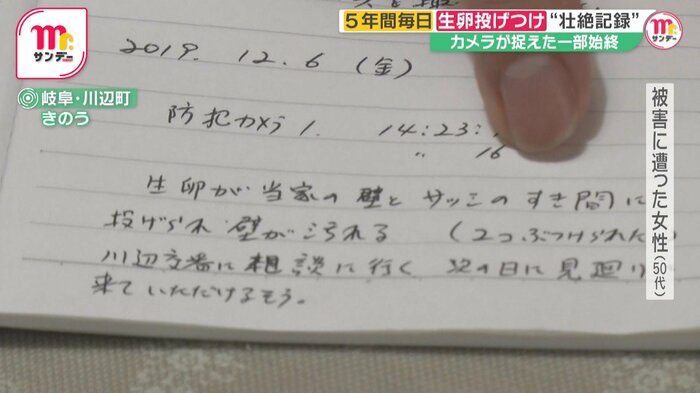 Mr.
サンデー
5年間毎日 生卵投げつけ “壮絶記録”
カメラが捉えた一部始終
Mr.
サンデー
岐阜・川辺町
きのう
被害に遭った女性(50代)
2019. 12. 6 (金)
防犯カメラ 1. 14:23:
〃 16
生卵が当家の壁とサッシのすき間に
投げられ 壁が汚れる (2つぶつけられた
川辺交番に相談に行く 次の日に見廻り
来ていただけるそう。